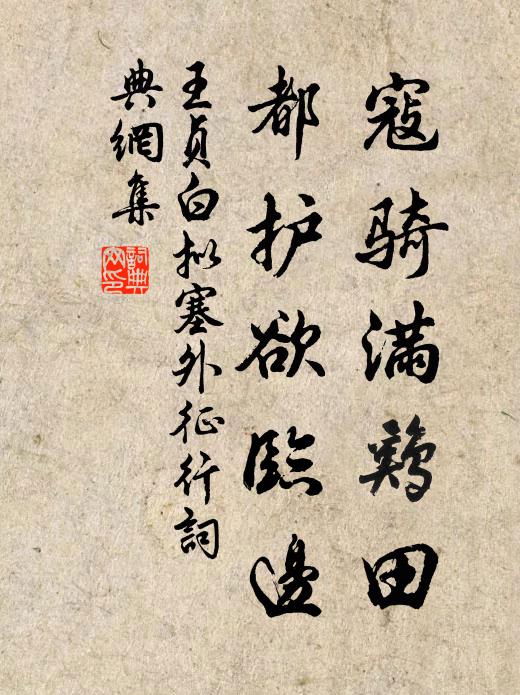 寇骑满鸡田
都护欲临边
王贞白拟塞外征行词
典網集
詞典
网印